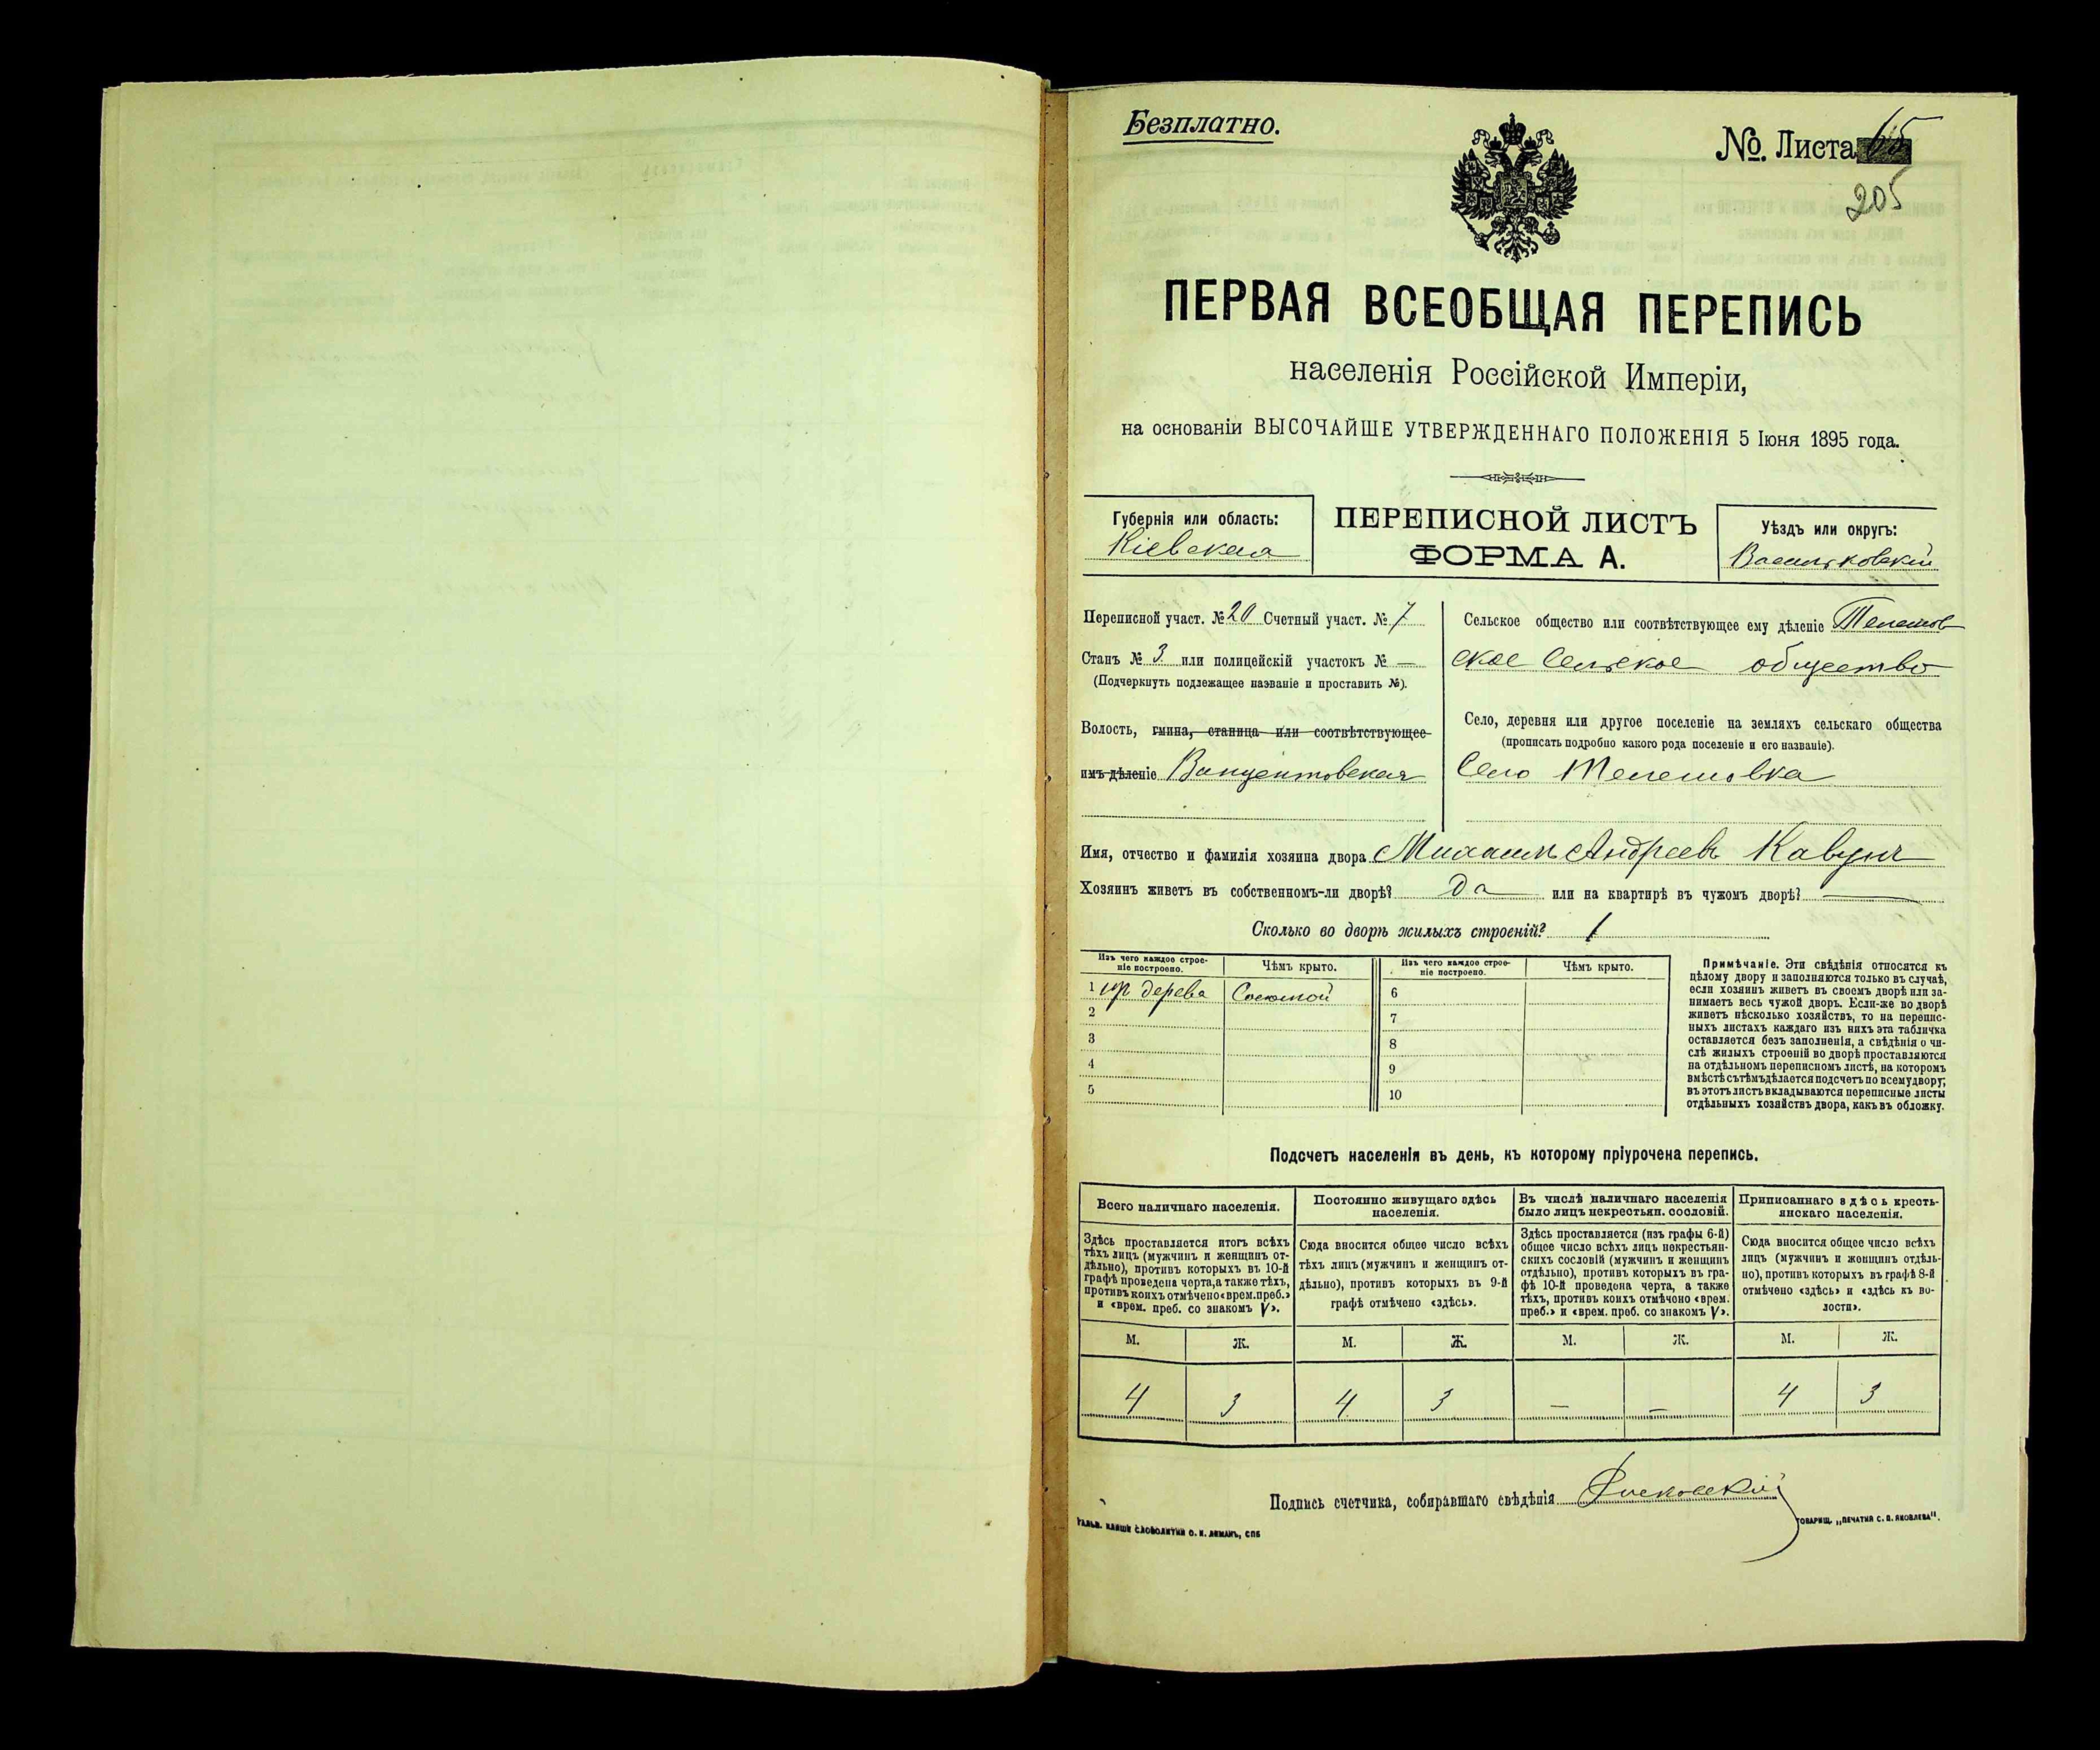 Безплатно.
№. Листа 65
205
ПЕРВАЯ ВСЕОБЩАЯ ПЕРЕПИСЬ
населенія Россійской Имперіи,
на основаніи ВЫСОЧАЙШЕ УТВЕРЖДЕННАГО ПОЛОЖЕНІЯ 5 Іюня 1895 года.
Губернія или область:
Кіевская
ПЕРЕПИСНОЙ ЛИСТЪ
ФОРМА А.
Уѣздъ или округъ:
Васильковскій
Переписной участ. № 20 Счетный участ. № 7
Станъ № 3 или полицейскій участокъ № —
(Подчеркнуть подлежащее названіе и проставить №).
Волость, гмина, станица или соотвѣтствующее
имъ дѣленіе Винцентовская
Сельское общество или соотвѣтствующее ему дѣленіе Телешов
ское Сельское общество
Село, деревня или другое поселеніе на земляхъ сельскаго общества
(прописать подробно какого рода поселеніе и его названіе).
Село Телешовка
Имя, отчество и фамилія хозяина двора Михаилъ Андреевъ Кавунъ
Хозяинъ живетъ въ собственномъ-ли дворѣ? да или на квартирѣ въ чужомъ дворѣ? —
Сколько во дворѣ жилыхъ строеній? 1
Изъ чего каждое строе-
ніе построено.
Чѣмъ крыто.
Изъ чего каждое строе-
ніе построено.
Чѣмъ крыто.
1 изъ дерева Соломой
2
3
4
5
6
7
8
9
10
Примѣчаніе. Эти свѣдѣнія относятся къ
цѣлому двору и заполняются только въ случаѣ,
если хозяинъ живетъ въ своемъ дворѣ или за-
нимаетъ весь чужой дворъ. Если-же во дворѣ
живетъ нѣсколько хозяйствъ, то на перепис-
ныхъ листахъ каждаго изъ нихъ эта табличка
оставляется безъ заполненія, а свѣдѣнія о чи-
слѣ жилыхъ строеній во дворѣ проставляются
на отдѣльномъ переписномъ листѣ, на которомъ
вмѣстѣ съ тѣмъ дѣлается подсчетъ по всему двору;
въ этотъ листъ вкладываются переписные листы
отдѣльныхъ хозяйствъ двора, какъ въ обложку.
Подсчетъ населенія въ день, къ которому пріурочена перепись.
Всего наличнаго населенія.
Здѣсь проставляется итогъ всѣхъ
тѣхъ лицъ (мужчинъ и женщинъ от-
дѣльно), противъ которыхъ въ 10-й
графѣ проведена черта, а также тѣхъ,
противъ коихъ отмѣчено «врем. преб.»
и «врем. преб. со знакомъ V».
Постоянно живущаго здѣсь
населенія.
Сюда вносится общее число всѣхъ
тѣхъ лицъ (мужчинъ и женщинъ от-
дѣльно), противъ которыхъ въ 9-й
графѣ отмѣчено «здѣсь».
Въ числѣ наличнаго населенія
было лицъ некрестьян. сословій.
Здѣсь проставляется (изъ графы 6-й)
общее число всѣхъ лицъ некрестьян-
скихъ сословій (мужчинъ и женщинъ
отдѣльно), противъ которыхъ въ гра-
фѣ 10-й проведена черта, а также
тѣхъ, противъ коихъ отмѣчено «врем.
преб.» и «врем. преб. со знакомъ V».
Приписаннаго здѣсь кресть-
янскаго населенія.
Сюда вносится общее число всѣхъ
лицъ (мужчинъ и женщинъ отдѣль-
но), противъ которыхъ въ графѣ 8-й
отмѣчено «здѣсь» и «здѣсь къ во-
лости».
М. Ж. М. Ж. М. Ж. М. Ж.
4 3 4 3 — — 4 3
Подпись счетчика, собиравшаго свѣдѣнія
ГАЛЬВ. КЛИШЕ СЛОВОЛИТНИ О. И. ЛЕМАНЪ, СПБ
ТОВАРИЩ. „ПЕЧАТНЯ С. П. ЯКОВЛЕВА".